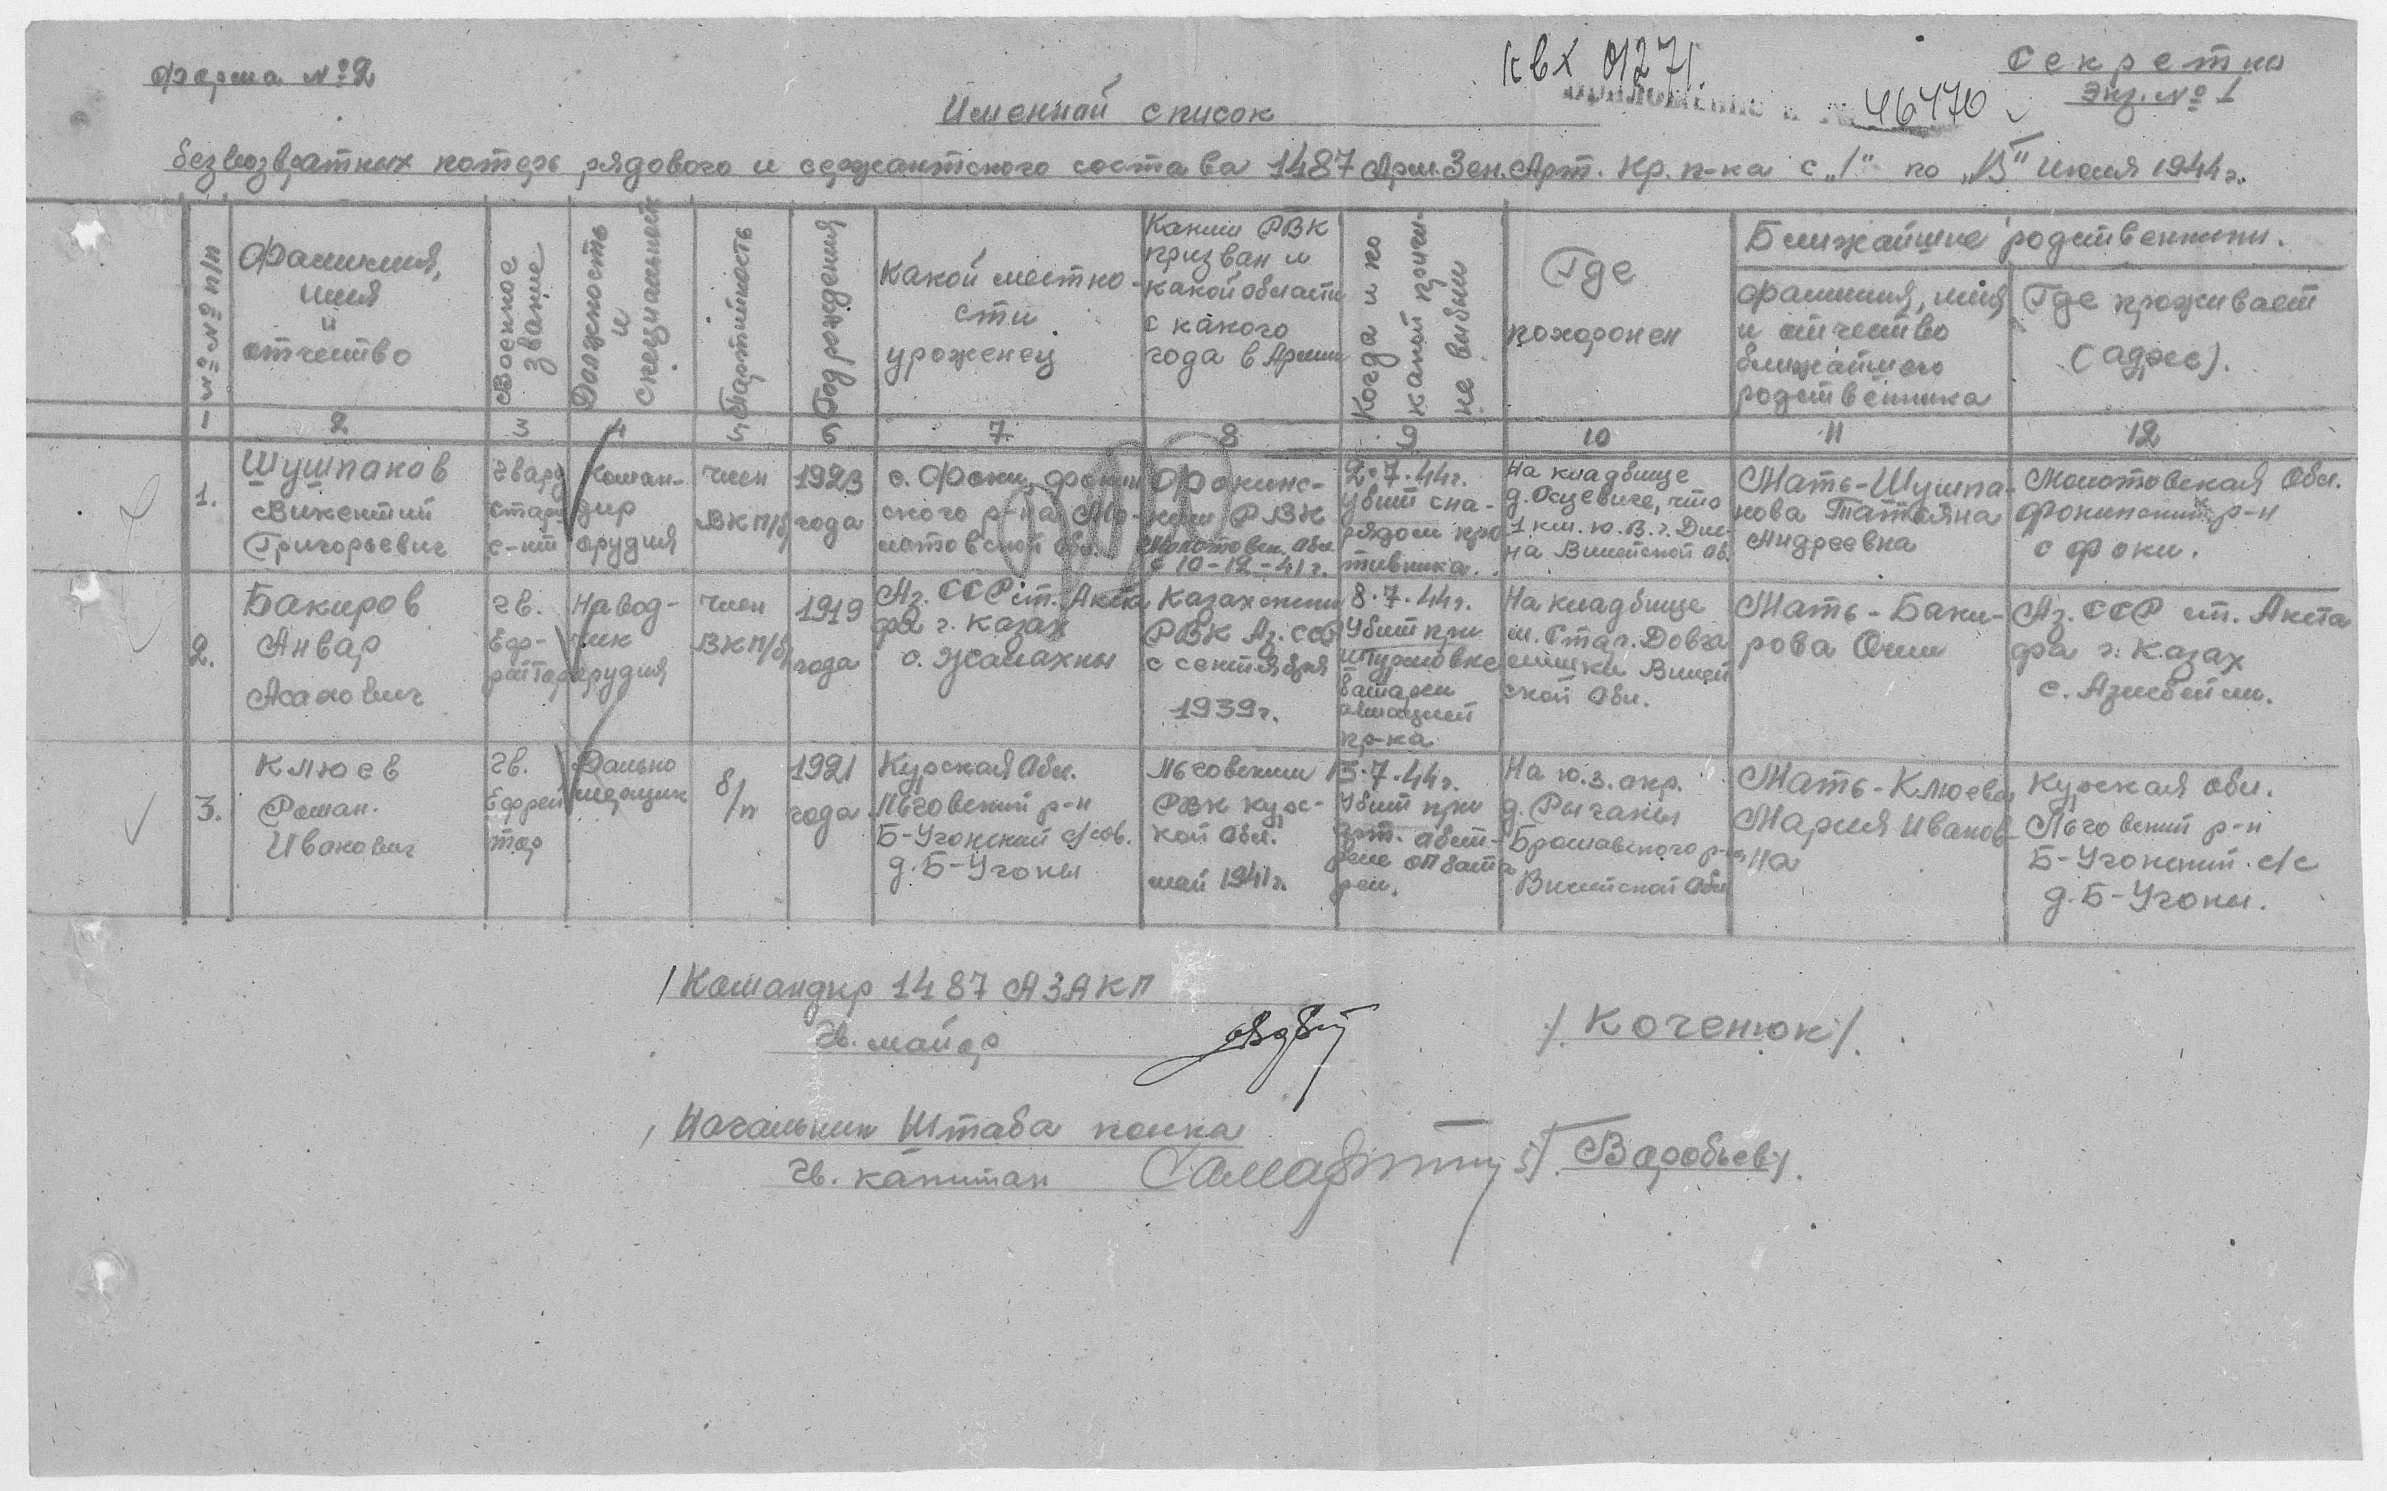 Форма №2
к вх 01271.
Секретно
Экз. №1
приложение к №
46470
Именной список
безвозвратных потерь рядового и сержантского состава 1487 Арм. Зен. Арт. Кр. п-ка с „1" по „15" июля 1944 г.
№№ п/п
Фамилия,
имя
и
отчество
Военное
звание
Должность
и
специальность
Партийность
Год рождения
Какой местно-
сти
уроженец
Каким РВК
призван и
какой области
с какого
года в Армии
Когда и по
какой причи-
не выбыл
Где
похоронен
Ближайшие родственники.
фамилия, имя
и отчество
ближайшего
родственника
Где проживает
(адрес).
1 2 3 4 5 6 7 8 9 10 11 12
1.
Шушпаков
Викентий
Григорьевич
Гвард
старш
с-нт
Коман-
дир
орудия
член
ВКП/б/
1923
года
с. Фоки, Фокин
ского р-на Мо-
лотовской обл.
Фокинс-
ким РВК
Молотовск. обл
с 10-12-41 г.
2.7.44 г.
убит сна-
рядом про
тивника.
На кладбище
д. Осцевиче, что
1 км. ю.в. г. Дис-
на Вилейской об.
Мать-Шушпа-
кова Татьяна
Андреевна
Молотовская обл.
Фокинский р-н
с Фоки.
2.
Бакиров
Анвар
Асадович
гв.
Еф-
рейтор
Навод-
чик
орудия
член
ВКП/б/
1919
года
Аз. ССР ст. Акста
фа г. Казах
с. Жамахны
Казахским
РВК Аз. ССР
с сентября
1939 г.
8.7.44 г.
Убит при
штурмовке
батареи
авиацией
пр-ка
На кладбище
м. Стар. Довга
елишки Вилей
ской обл.
Мать - Баки-
рова Очии
Аз. ССР ст. Акста
фа г. Казах
с. Азисбейли.
3.
Клюев
Роман.
Иванович
гв.
Ефрей
тор
Дально
мерщик
б/п
1921
года
Курская обл.
Льговский р-н
Б-Угонский с/сов.
д. Б-Угоны
Льговским
РВК Курс-
кой обл.
май 1941 г.
13.7.44 г.
Убит при
арт. обст-
реле ОП бата
реи.
На ю.з. окр.
д. Рычаны
Браславского р-на
Вилейской обл
Мать-Клюева
Мария Иванов-
на
Курская обл.
Льговский р-н
Б-Угонский с/с
д. Б-Угоны.
/ Командир 1487 АЗАКП
Гв. майор
/ Коченюк /.
/ Начальник Штаба полка
Гв. капитан
/ Воробьев /.